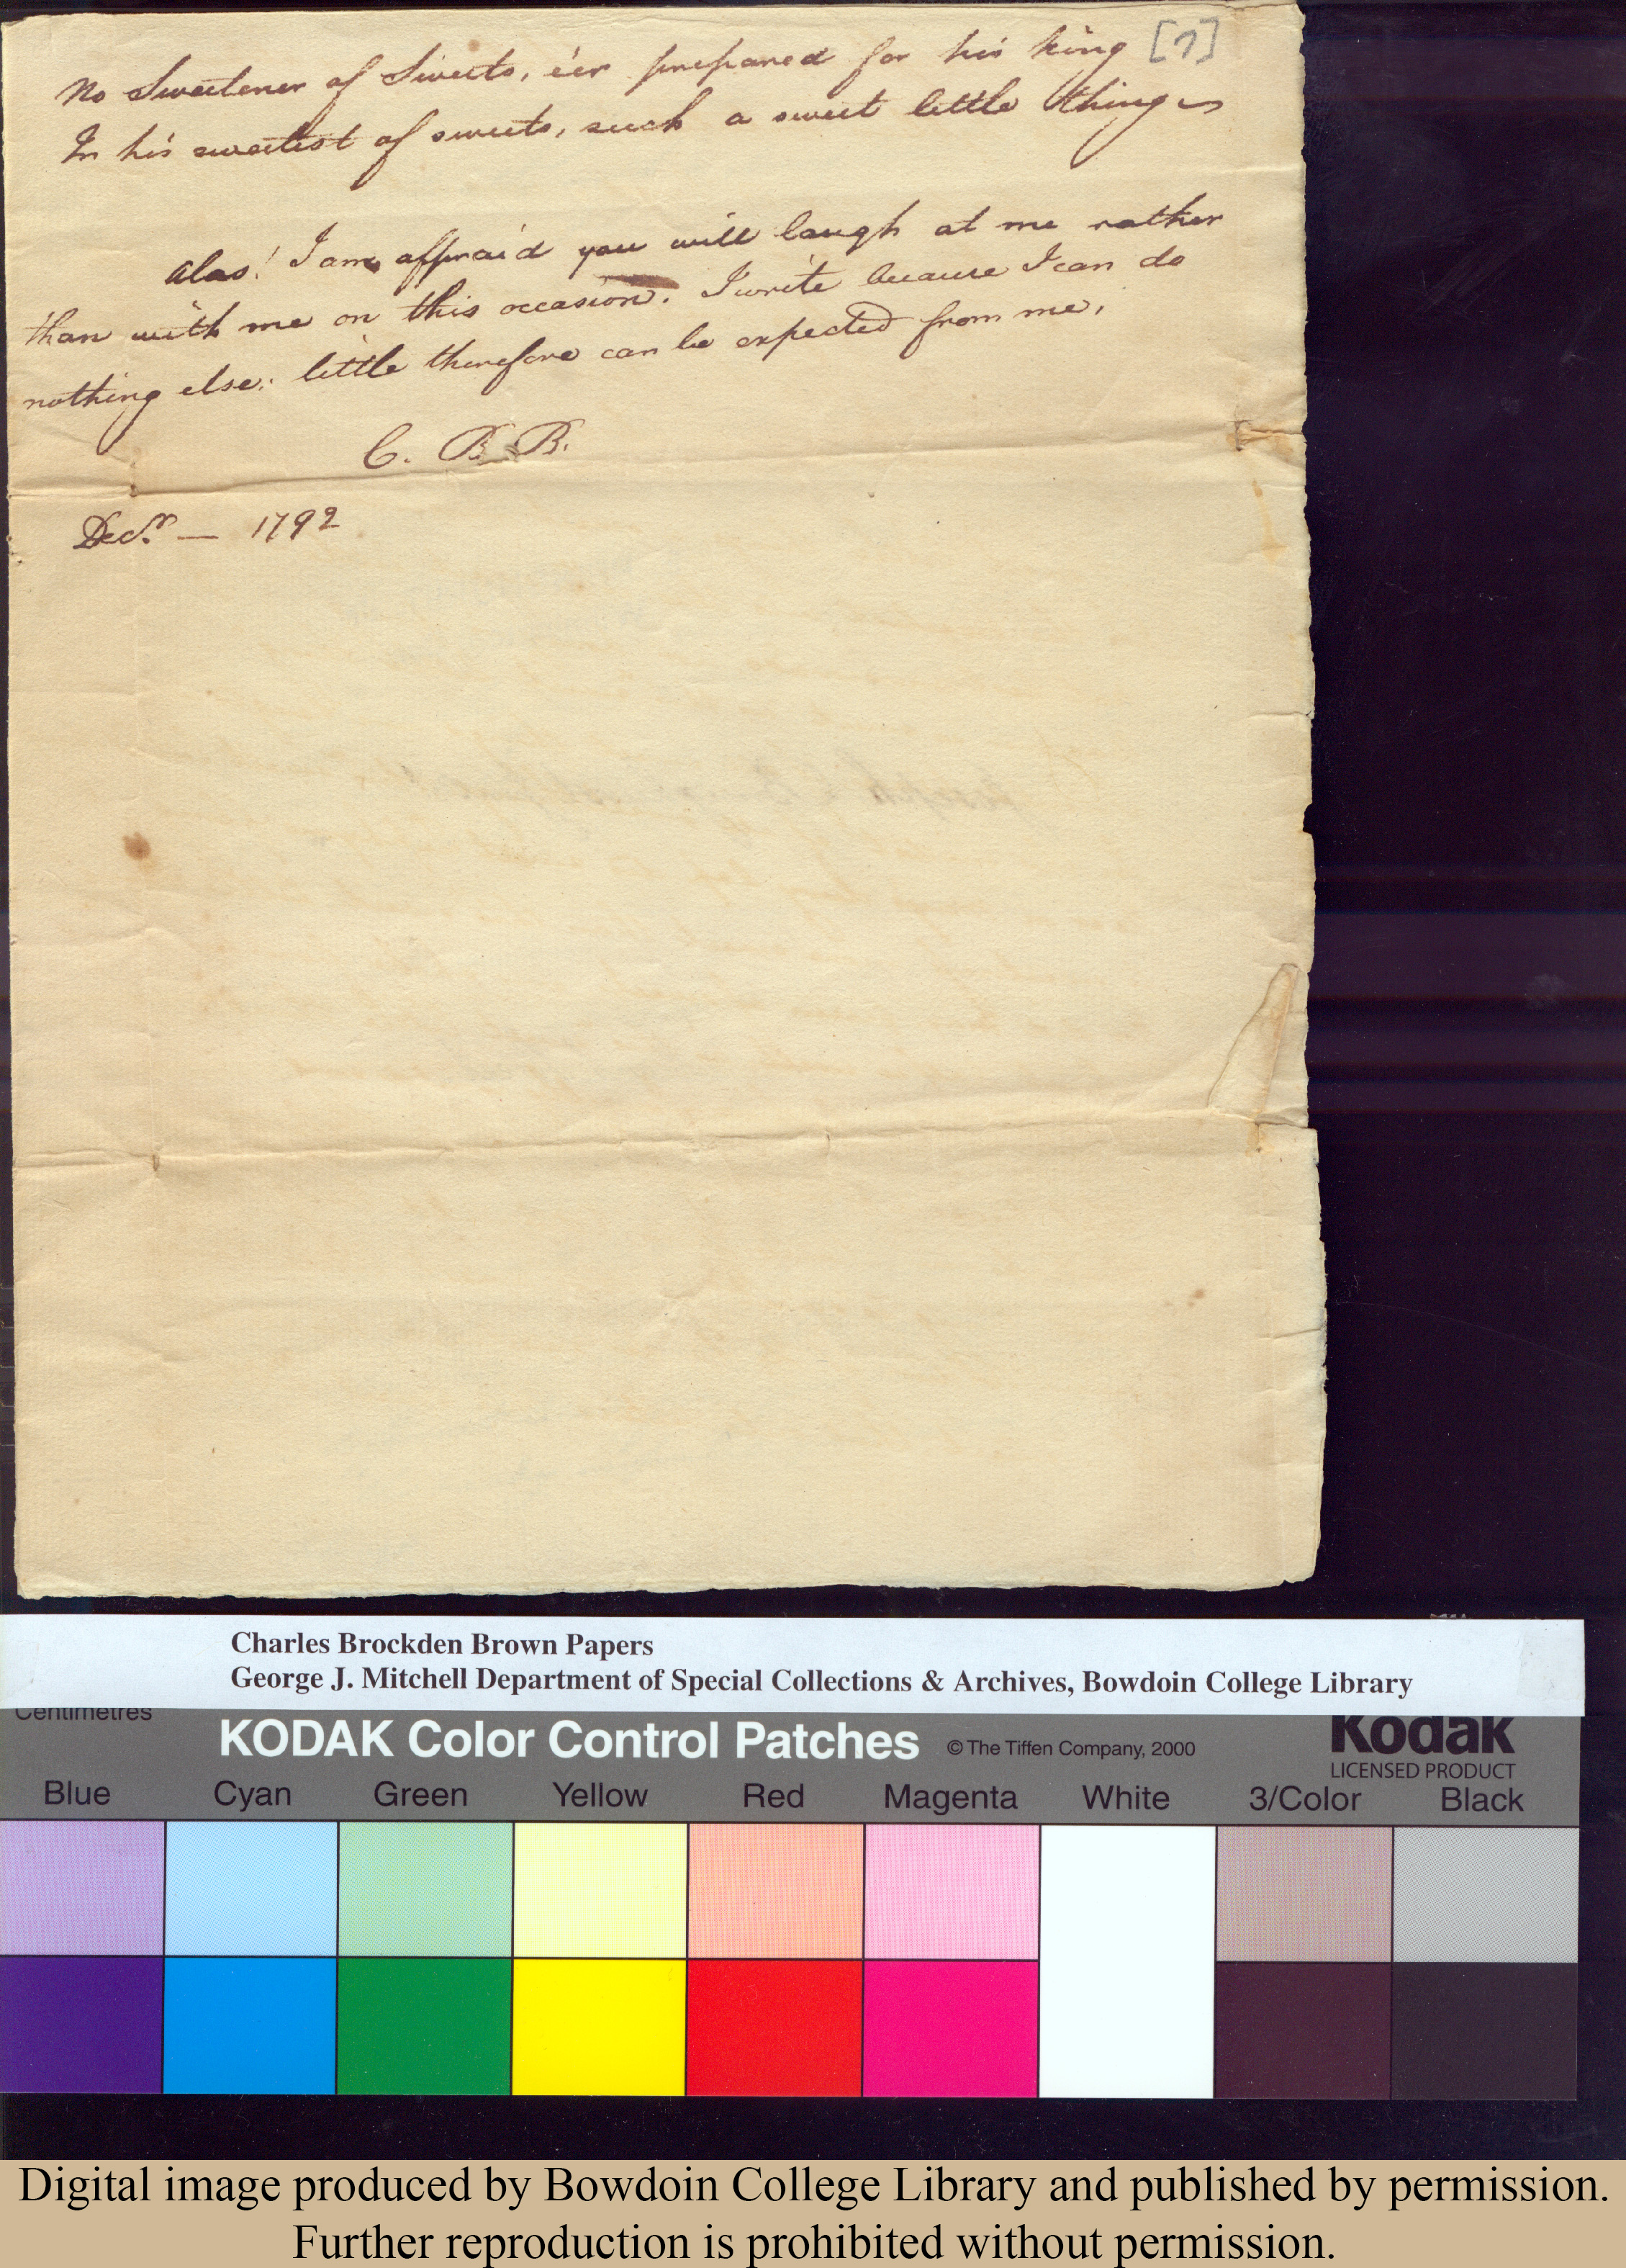 [7]
No Sweetener of Sweets, e'er prepared for his king
In his sweetest of sweets, such a sweet little thing
Alas! I am affraid you will laugh at me rather
than with me on this occasion. I write because I can do
nothing else: little therefore can be expected from me.
C. B. B.
Decr. — 1792
Charles Brockden Brown Papers
George J. Mitchell Department of Special Collections & Archives, Bowdoin College Library
Centimetres
KODAK Color Control Patches © The Tiffen Company, 2000 Kodak
LICENSED PRODUCT
Blue Cyan Green Yellow Red Magenta White 3/Color Black
Digital image produced by Bowdoin College Library and published by permission.
Further reproduction is prohibited without permission.